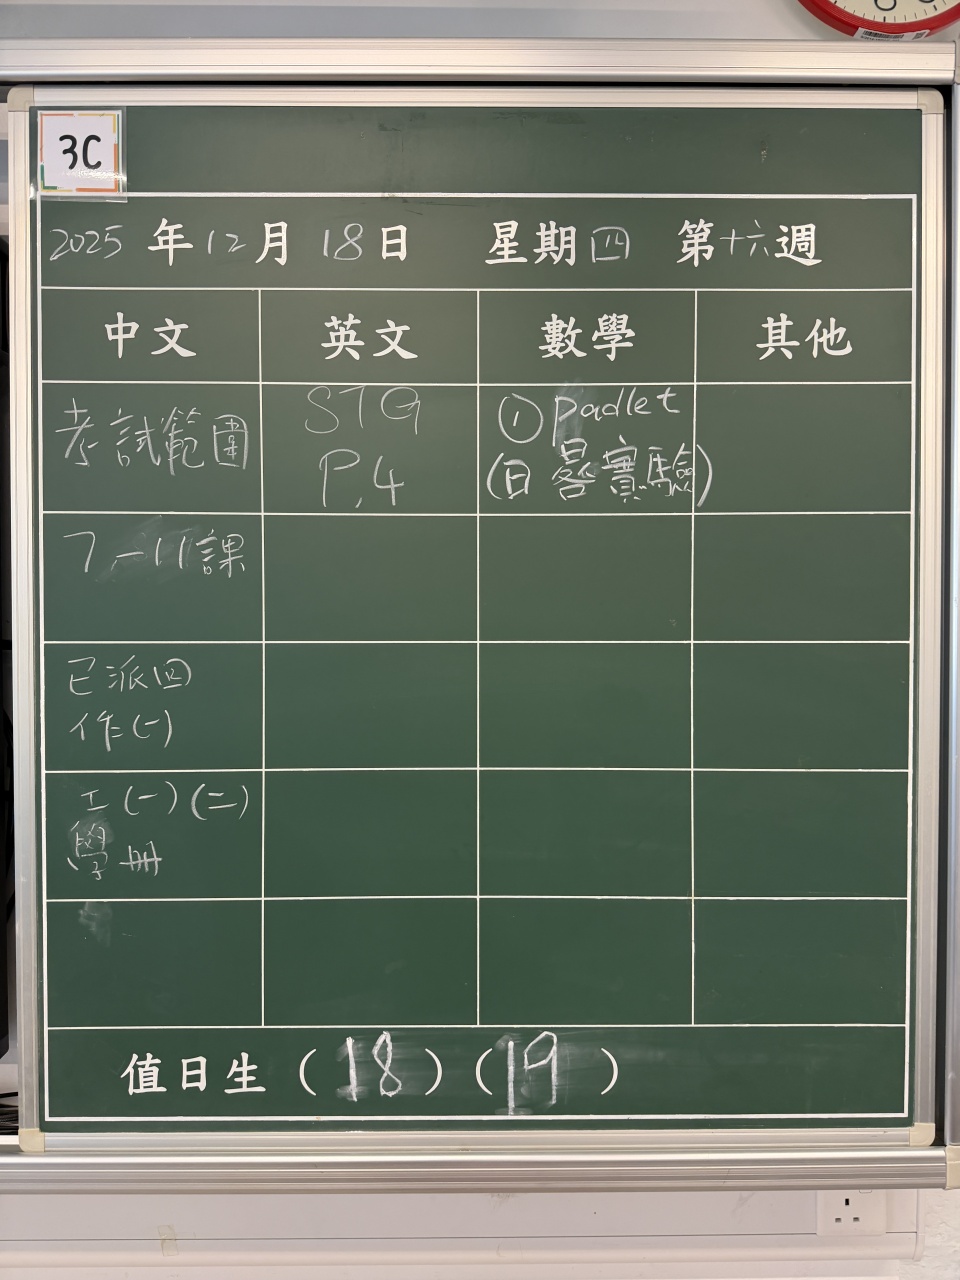 3C
2025年12月18日 星期四 第十六週
中文 英文 數學 其他
考試範圍
STG
P.4
① Padlet
(日晷實驗)
7-11課
已派回
作(一)
工(一)(二)
學冊
值日生(18)(19)